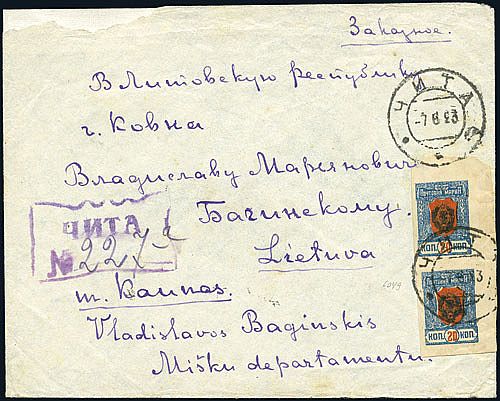 Заказное.
В Литовскую республику
г. Ковна
Владиславу Марьяновичу
Багинскому.
Lietuva
m. Kaunas.
Vladislavos Baginskis
Mišku departamentu.
ЧИТА
№ 227
ЧИТА
-7 6 23
ПОЧТОВАЯ МАРКА
КОП. 20 КОП.
ПОЧТОВАЯ МАРКА
КОП. 20 КОП.